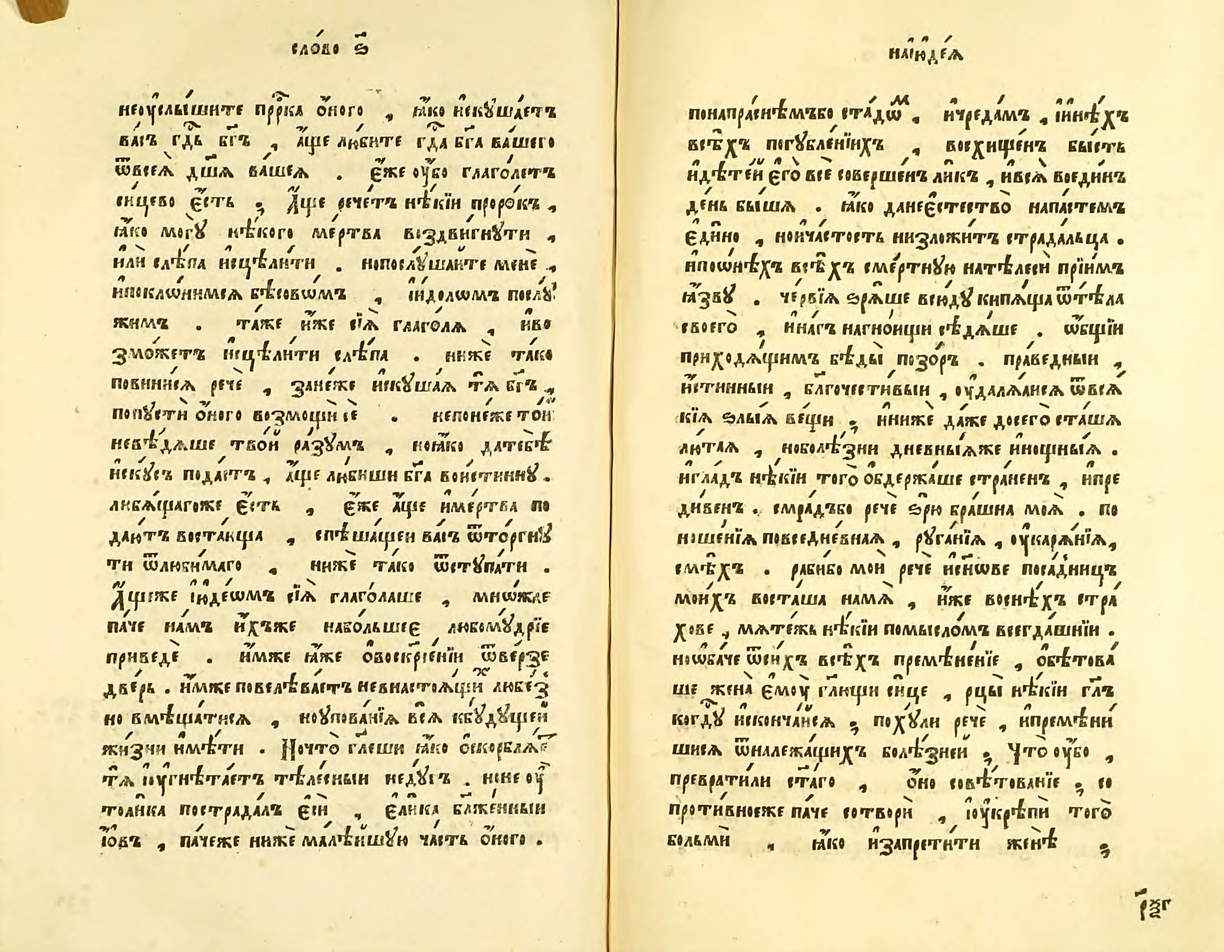 сло́во ѕ҃
неоу҆слы́шите прⷪ҇рка о҆́ного , ꙗ҆́ко и҆скꙋша́етъ
ва́съ гдⷭ҇ь бг҃ъ , а҆́ще лю́бите гдⷭ҇а бг҃а ва́шего
ѿвсеѧ̀ дш҃а̀ ва́шеѧ . є҆́же оу҆̀бо глаго́летъ
си́цево є҆́сть ; А҆́ще рече́тъ нѣ́кїи проро́къ ,
ꙗ҆́ко могꙋ̀ нѣ́кого ме́ртва воздви́гнꙋти ,
и҆лѝ слѣ́па и҆сцѣли́ти . нопослꙋ́шаите менѐ ,
и҆поклони́мсѧ бѣсовѡ́мъ , и҆і҆́долѡмъ послꙋ́
жимъ . та́же и҆́же сїѧ̀ глаго́лѧ , и҆во
змо́жетъ и҆сцѣли́ти слѣ́па . нижѐ та́ко
пови́нисѧ речѐ , зане́же и҆скꙋша́ѧ тѧ̀ бг҃ъ ,
попꙋстѝ о҆́ного возмощи́сѐ . непоне́же то́и
невѣ́дѧше тво́и ра́зꙋмъ , ноꙗ҆́ко да́тебѣ̀
и҆скꙋ́съ пода́стъ , а҆́ще лю́биши бг҃а вои́стиннꙋ .
либѧ́щагоже є҆́сть , є҆́же а҆́ще и҆ме́ртва по
даю́тъ воста́вша , спѣша́щеи ва́съ ѿто́ргнꙋ
ти ѿлюби́маго , нижѐ та́ко ѿстꙋпа́ти .
А҆́щеже і҆ꙋде́ѡмъ сїѧ̀ глаго́лаше , мно́жае
па́че на́мъ и҆́хъже набо́льшеє любомꙋ́дрїе
приведѐ . и҆́мже ꙗ҆́же о҆воскрⷭ҇нїи ѿве́рзе
две́рь . и҆́мже повелѣва́етъ невнастоѧ́щиⷯ любе́з
но вмѣща́тисѧ , ноу҆пова́нїѧ всѧ̀ кбꙋ́дꙋщеи
жи́зни и҆мѣ́ти . Ночто̀ гл҃еши ꙗ҆́ко ѡ҆скорблѧ́е
тѧ̀ і҆оу҆гнѣта́етъ тѣле́сныи недꙋ́гъ . нине оу҆̀
толи́ка пострада́лъ є҆сѝ , є҆ли́ка бл҃же́нныи
і҆́овъ , па́чеже нижѐ малѣ́ишꙋю ча́сть о҆́ного .
наі҆ꙋде́ѧ
понапра́снѣмъбо ста́дѡⷨ , и҆чреда́мъ , і҆и҆нѣ́хъ
всѣ́хъ погꙋбле́нїихъ , восхище́нъ бы́сть
и҆дѣте́и є҆гѡ̀ ве́сь соверше́нъ ли́къ , и҆всѧ̀ воеди́нъ
де́нь бы́шѧ . ꙗ҆́ко данее҆стество̀ напа́стемъ
є҆ди́но , нои҆ча́стость низложи́тъ страда́льца .
и҆поѡ҆нѣ́хъ всѣ́хъ сме́ртнꙋю натѣлесѝ прїи́мъ
ꙗ҆́звꙋ . че́рвїѧ ѕрѧ́ше всю́дꙋ кипѧ́ща ѿтѣ́ла
своегѡ̀ , и҆на́гъ нагно́ищи сѣдѧ́ше . ѡ҆́бщїи
приходѧ́щимъ бѣды̀ позо́ръ . пра́ведныи ,
и҆́стинныи , бл҃гочести́выи , оу҆далѧ́исѧ ѿвсѧ́
кїѧ ѕлы́ѧ ве́щи ; и҆нижѐ да́же досего̀ ста́шѧ
лю́таѧ , ноболѣ́зни дневны́ѧже и҆нощны́ѧ .
и҆гла́дъ нѣ́кїи того̀ обдержа́ше стра́ненъ , и҆пре
ди́венъ . смра́дъбо речѐ ѕрю̀ бра́шна моѧ̀ . по
ноше́нїѧ повседне́внаѧ , рꙋга́нїѧ , оу҆карѧ́нїѧ,
смѣ́хъ . раби́бо моѝ речѐ и҆сы́нове поса́дницъ
мои́хъ воста́ша намѧ̀ , и҆́же восне́хъ стра́
хове , мѧте́жь нѣ́кїи по́мысломъ всегда́шнїи .
ноѻба́че ѿси́хъ всѣ́хъ премѣне́нїе , о҆бѣтова́
ше жена̀ є҆моу҆̀ гл҃ющи си́це , рцы̀ нѣ́кїи гл҃ъ
когдⷭ҇ꙋ и҆сконча́исѧ ; похꙋлѝ речѐ , и҆премѣни́
шисѧ ѿналежа́щихъ болѣ́знеи ; Что̀ оу҆́бо ,
преврати́ли ст҃аго , о҆но совѣтова́нїе ; со
проти́вноеже па́че сотворѝ , і҆оу҆крѣпѝ того̀
бо́льми , ꙗ҆́ко и҆запрети́ти женѣ̀ ;
рѯ҃г